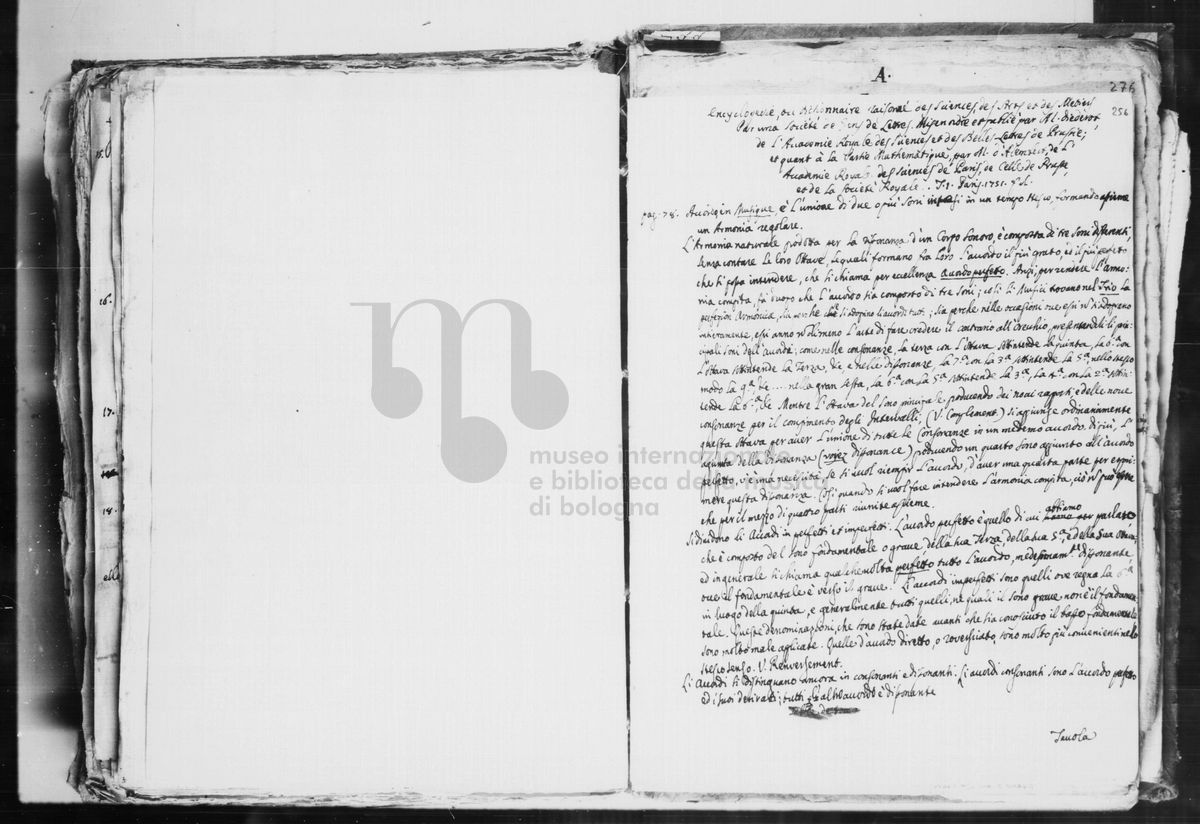 15.
16.
17.
18.
ella
A.
276
256
Encyclopedie, ou Dictionnaire raisoné des Sciences des Arts et des Metiers
Par una Societé de Gens de Lettres. Mis en ordre et publié par M. Diderot,
de L'Accademie Royale des Sciences et des Belles Lettres de Prusse;
et quant à la Partie Mathematique, par M. d'Alembert, de L'
Academie Royale des Sciences de Paris, de Celle de Prusse,
et de la Societé Royale . T. 1. Paris. 1751. f.
pag. 78. Accord en Musique, è L'unione di due o più Soni intesi in un tempo stesso, formando assieme
un Armonia regolare.
L'Armonia naturale prodotta per La risonanza d'un Corpo Sonoro, è composta di tre Soni differenti,
Senza contare Le loro Ottave, Le quali formano fra Loro L'accordo il più grato, ed il più
che si possa intendere, che si chiama per eccellenza Accordo perfetto. Anzi, per rendere L'armo-
nia compita, fà duopo che L'accordo sia composto di tre Soni; così Li Musici trovano nel Trio La
perfezion Armonica, sia perche che si adoprino li accordi tutti; sia perche nelle occasioni ove essi non si adoprano
interamente, essi anno L'arte di fare credere il contrario all'Orecchio, presentandoli li prin-
cipali Soni dell'accordo; come nelle consonanze, La terza con L'Ottava sottintende La quinta, La 6.a con
L'Ottava sottintende La Terza, &c e nelle dissonanze, La 7.a con La 3.a sottintende La 5.a, nello stesso
modo La 9.a &c .... nella gran Sesta, La 6.a con La 5.a sottintende La 3.a, La 4.a con La 2.a sottin-
tende La 6.a, &c Mentre L'Ottava del Sono principale producendo dei nuovi rapporti, e delle nuove
consonanze per il compimento degli Intervalli, (V. Complement.) si aggiunge ordinariamente
questa Ottava per aver L'unione di tutte Le Consonanze in un medemo accordo. Di più, L'
agiunta della Dissonanza (voyez dissonance) producendo un quarto Sono aggiunto all'accordo
perfetto, v'è una necessità, se si vuol riempir L'accordo, d'aver una quarta parte per espri-
mere questa dissonanza. Così quando si vuol fare intendere L'armonia compita, ciò non può essere
che per il mezzo di quattro parti riunite assieme.
Si dividono li Accordi in perfetti et imperfetti. L'accordo perfetto è quello di cui abbiamo parlato
che è composto del Sono fondamentale o grave, della sua Terza, della sua 5.a, e della Sua Ottava,
ed in generale si chiama qualche volta perfetto tutto L'accordo, medesimam.te dissonante
ove il fondamentale è verso il grave. Li accordi imperfetti sono quelli ove regna La 6.a
in luogo della quinta, e generalmente tutti quelli, ne quali il Sono grave non è il fondamen-
tale. Queste denominazioni, che sono state date avanti che si sia conosciuto il basso fondamentale
sono molto male applicate. Quelle d'accordo diretto, o roversciato, sono molto più convenienti nello
stesso senso. V. Renversement.
Li Accordi si distinguono ancora in consonanti e dissonanti. Li accordi consonanti sono L'accordo perfetto
ed i suoi derivati; tutti altro accordo è dissonante
Tavola
museo internazionale
e biblioteca della musica
di bologna